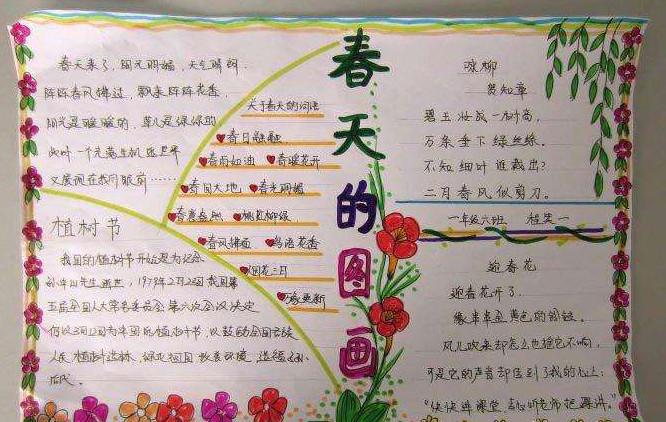 春天的图画
春天来了，阳光明媚，天气晴朗，
阵阵春风拂过，飘来阵阵花香，
阳光是暖暖的，草儿是绿绿的
又展现在我们眼前……
关于春天的词语
春日融融
春雨如油 春暖花开
春回大地 春光明媚
春意盎然 桃红柳绿
春风拂面 鸟语花香
烟花三月
万象更新
植树节
我国的植树节开始是为纪念
孙中山先生逝世，1979年2月23日我国第
五届全国人大常务委员会第六次会议决定
仍以3月12日为中国的植树节，以鼓动全国各族
人民植树造林，绿化祖国，改善环境，造福子孙
后代。
咏柳
贺知章
碧玉妆成一树高，
万条垂下绿丝绦。
不知细叶谁裁出？
二月春风似剪刀。
一年级六班
迎春花
迎春花开了，
像串串金黄色的铃铛。
风儿吹来却怎么也摇它不响，
可是它的声音却传到了我的心上：
“快快进课堂，专心听老师把课讲。”